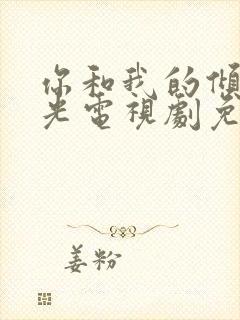 你和我的倾
光電視劇免
姜粉